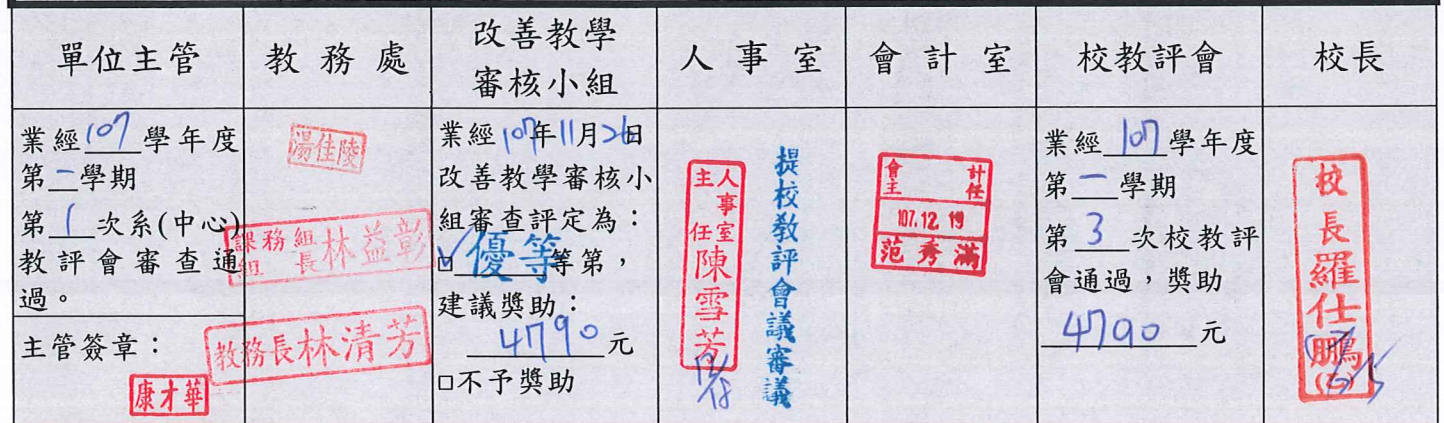 單位主管
教務處
改善教學
審核小組
人事室
會計室
校教評會
校長
業經107學年度
第一學期
第1次系(中心)
教評會審查通
過。
主管簽章：
康才華
湯佳陵
課務組
組長林益彰
教務長林清芳
業經107年11月26日
改善教學審核小
組審查評定為：
☑優等等第，
建議獎助：
4790元
□不予獎助
人事室
主任陳雪芳
提校教評會議審議
會計
主任
107.12.19
范秀滿
業經107學年度
第一學期
第3次校教評
會通過，獎助
4790元
校長羅仕鵬